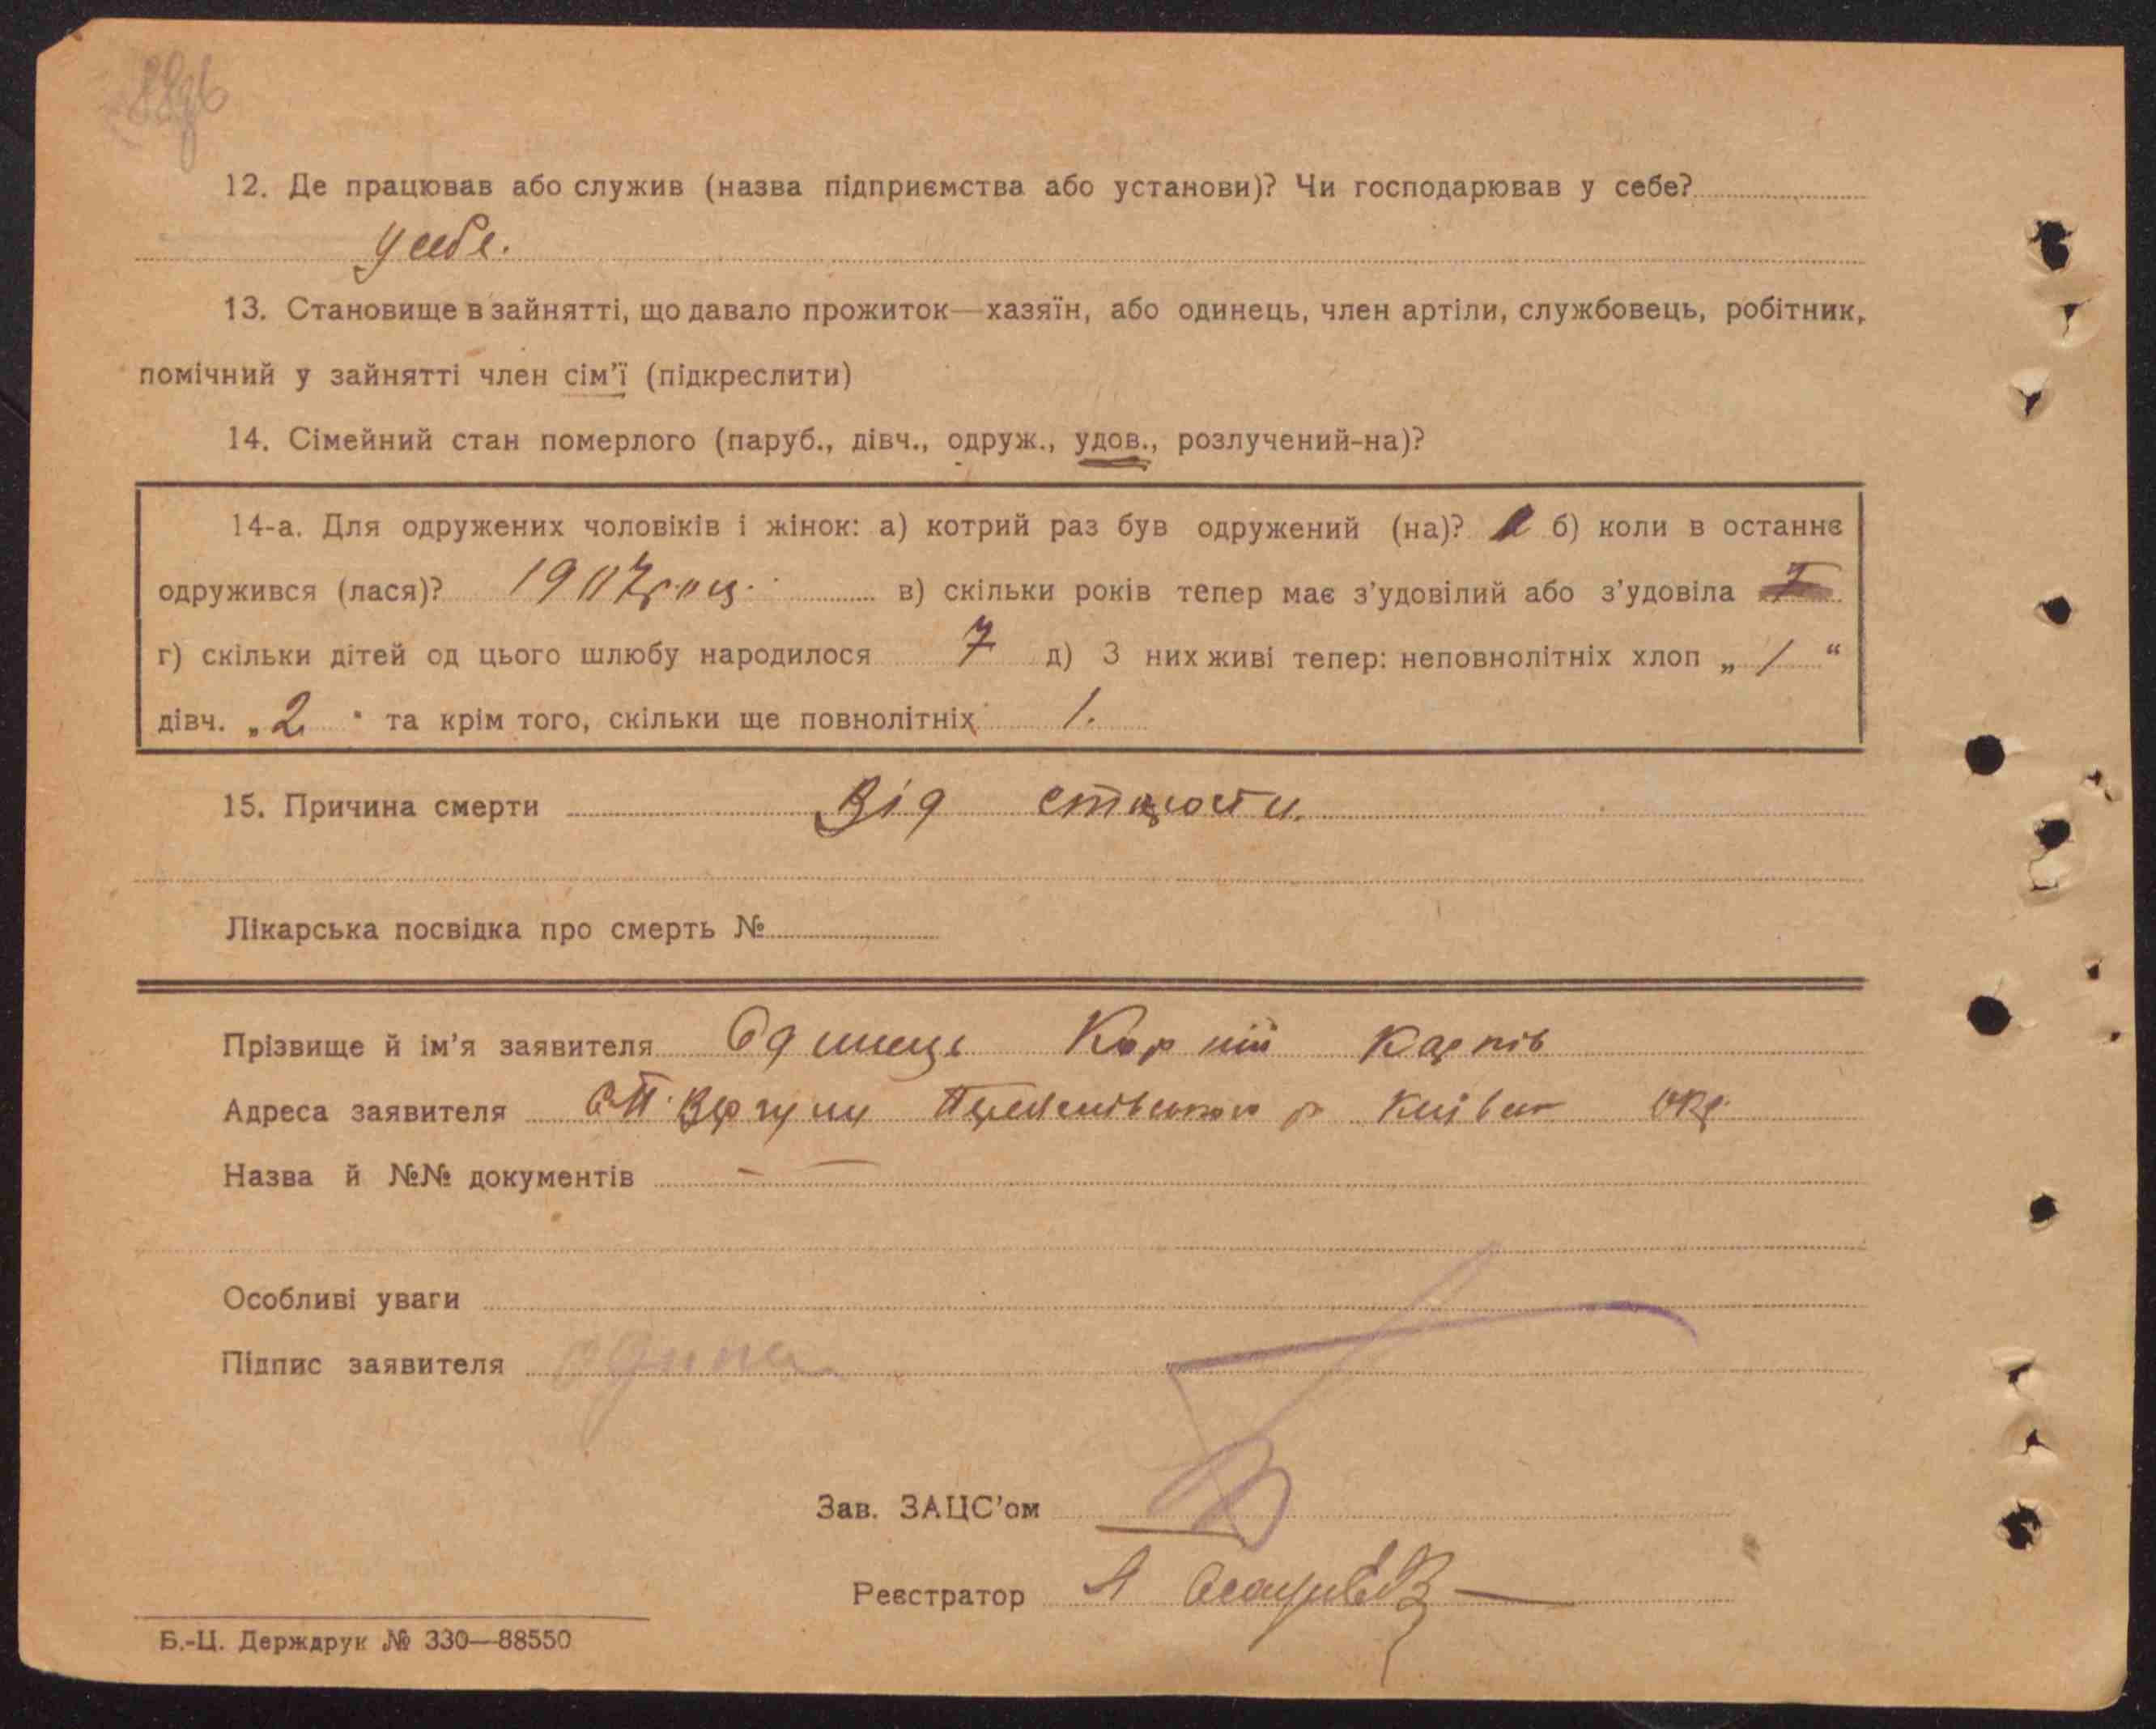 12. Де працював або служив (назва підприємства або установи)? Чи господарював у себе?
у себе.
13. Становище в зайнятті, що давало прожиток—хазяїн, або одинець, член артіли, службовець, робітник,
помічний у зайнятті член сім'ї (підкреслити)
14. Сімейний стан померлого (паруб., дівч., одруж., удов., розлучений-на)?
14-а. Для одружених чоловіків і жінок: а) котрий раз був одружений (на)? б) коли в останнє
одружився (лася)? 1907 роц. в) скільки років тепер має з'удовілий або з'удовіла
г) скільки дітей од цього шлюбу народилося 7 д) З них живі тепер: неповнолітніх хлоп „ 1 “
дівч. „ 2 " та крім того, скільки ще повнолітніх 1.
15. Причина смерти Від старости.
Лікарська посвідка про смерть №
Прізвище й ім'я заявителя Одинець Корній Карпів
Адреса заявителя р Київськ окр
Назва й №№ документів — —
Особливі уваги
Підпис заявителя
Зав. ЗАЦС'ом
Реєстратор А
Б.-Ц. Держдрук № 330—88550